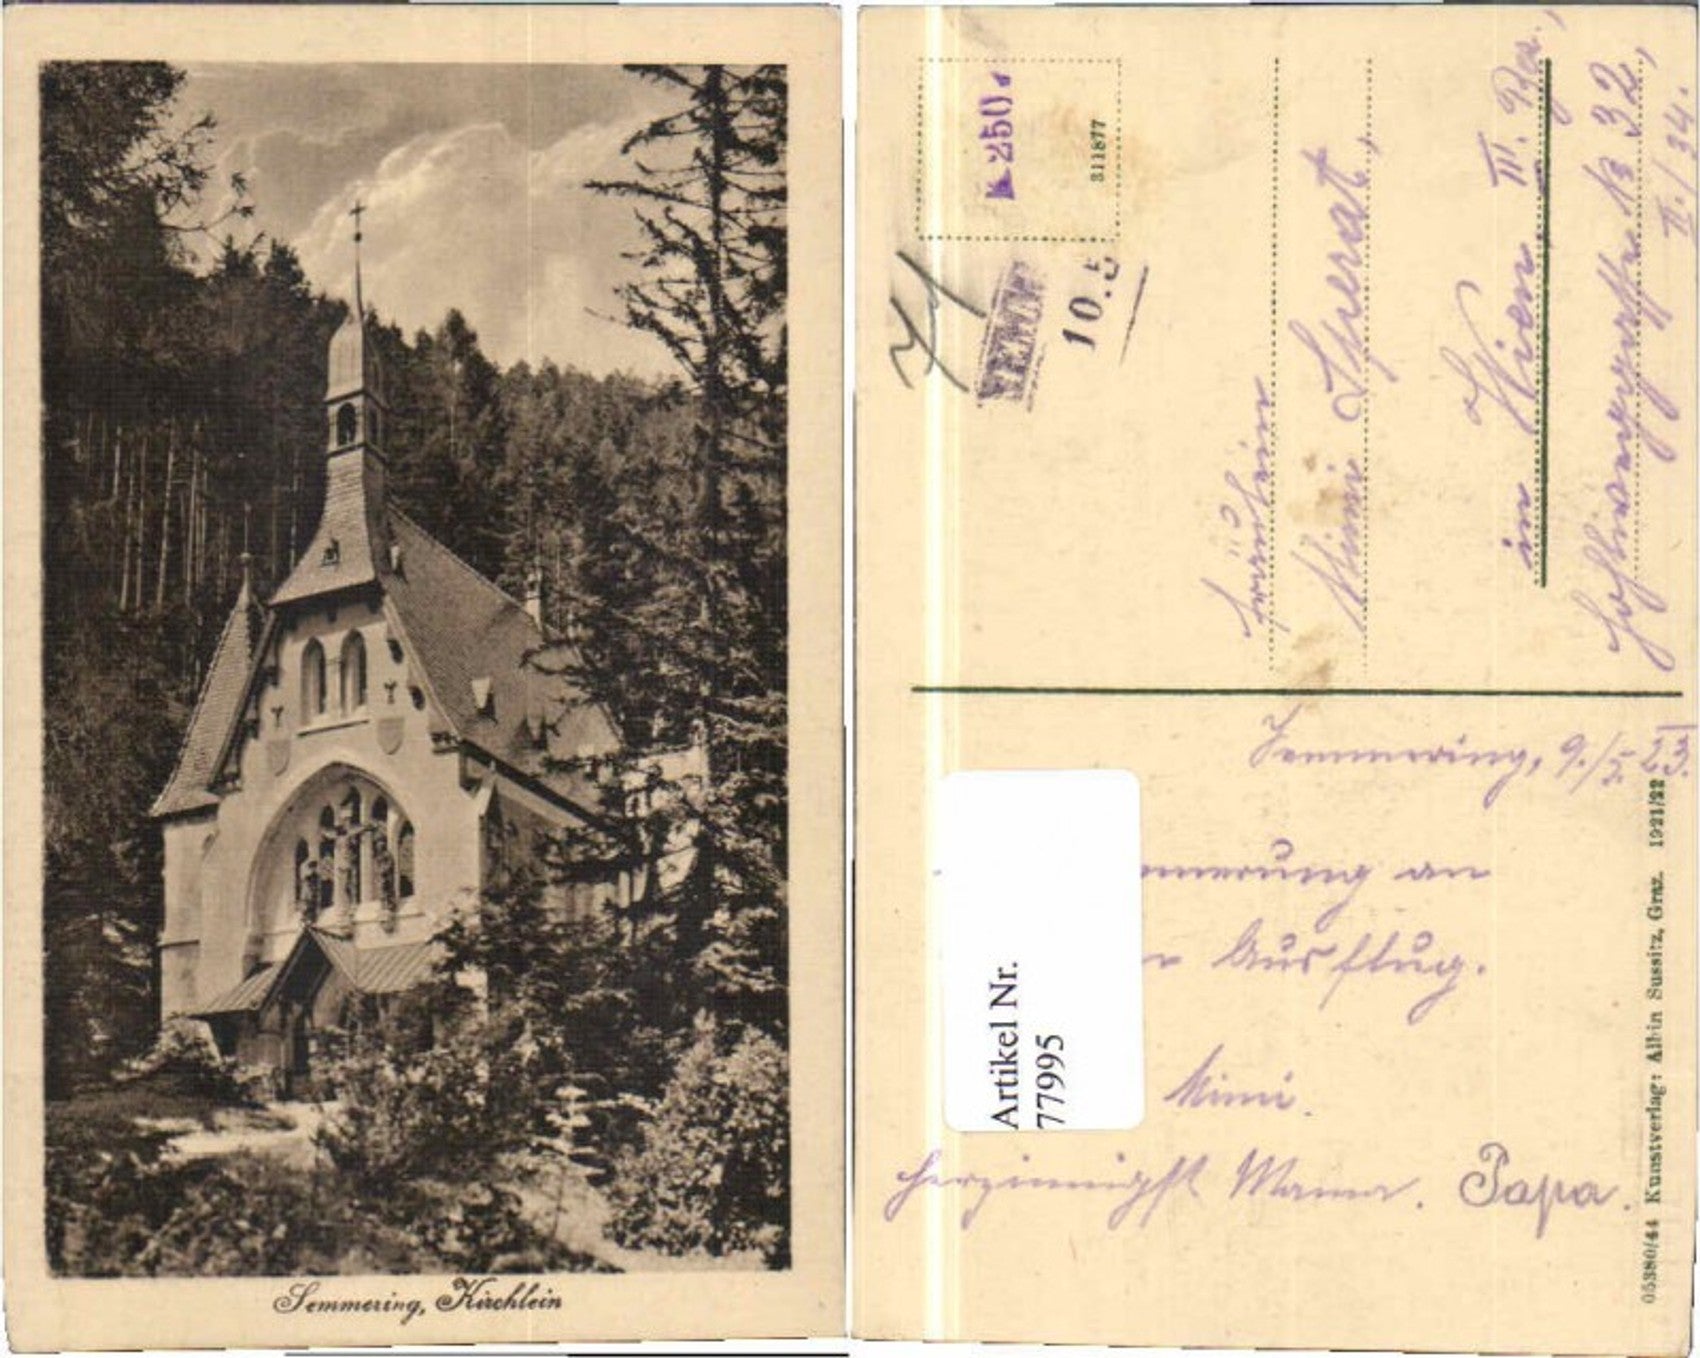 Semmering, Kirchlein
K 250
311877
71
10.5
Fräulein
Mimi Sperat,
in Wien III. Bez.,
№ 32,
II./34.
Semmering, 9./5. 23
nnerung an
Ausflug.
Mimi.
herzinnigst Mama. Papa.
Artikel Nr.
77995
05380/44 Kunstverlag: Albin Sussitz, Graz. 1921/22